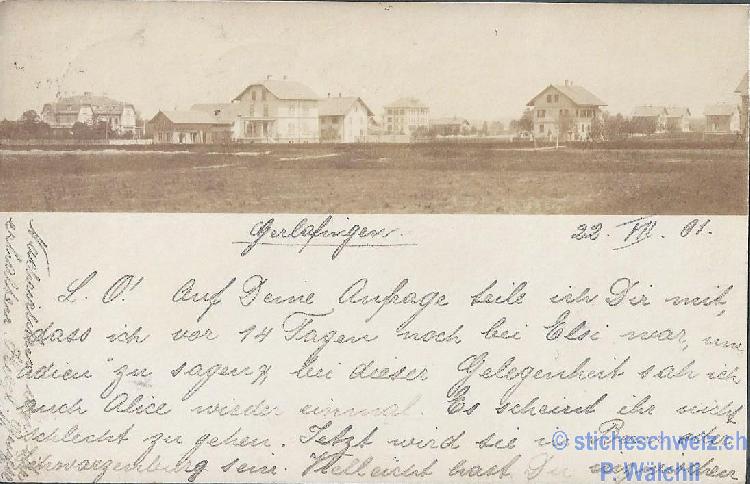 Gerlafingen. 22. VII. 01.
L. O! Auf Deine Anfrage teile ich Dir mit,
dass ich vor 14 Tagen noch bei Elsi war, um
"adieu" zu sagen, bei dieser Gelegenheit sah ich
auch Alice wieder einmal. Es scheint ihr nicht
schlecht zu gehen. Jetzt wird sie in Bern oder
Schwarzenburg sein. Vielleicht hast Du inzwischen
erhalten
© sticheschweiz.ch
P. Wälchli